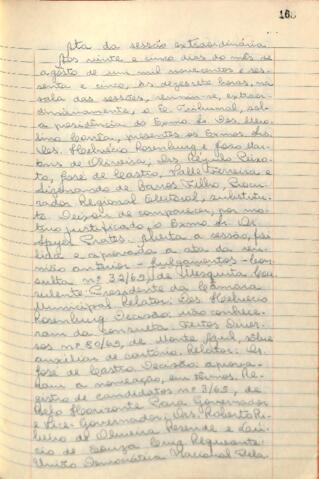 168
Ata da sessão extraordinária
Aos vinte e cinco dias do mês de
agôsto de um mil novecentos e ses-
senta e cinco, às dezessete horas, na
sala das sessões, reuniu-se, extraor-
dinàriamente, o E. Tribunal, sob
a presidência do Exmo. Sr. Des.
presentes os Exmos. Srs.
Des. Helvécio Rosenburg e José Mar-
tins de Oliveira, Drs. Cyrillo Peixo-
to, José de Castro, Valle Ferreira e
de Barros Filho, Procu-
rador Regional Eleitoral, substituto.
Deixou de comparecer, por mo-
tivo justificado, o Exmo. Sr. Dr.
Prates. Aberta a sessão, foi
lida e aprovada a ata da reu-
nião anterior. Julgamentos - Con-
sulta nº 32/65, de Mesquita. Con-
sulente: Presidente da Câmara
Municipal. Relator: Des. Helvécio
Rosenburg. Decisão: não conhece-
ram da consulta. Feitos Diver-
sos nº 80/65, de Monte Azul, sôbre
auxiliar de cartório. Relator: Dr.
José de Castro. Decisão: aprova-
ram a nomeação, em têrmos. Re-
gistro de candidatos nº 3/65, de
Belo Horizonte. Para Governador
e Vice-Governador, Drs. Roberto Ri-
beiro de Oliveira Resende e
de Souza Cruz. Requerente:
União Democrática Nacional. Rela-